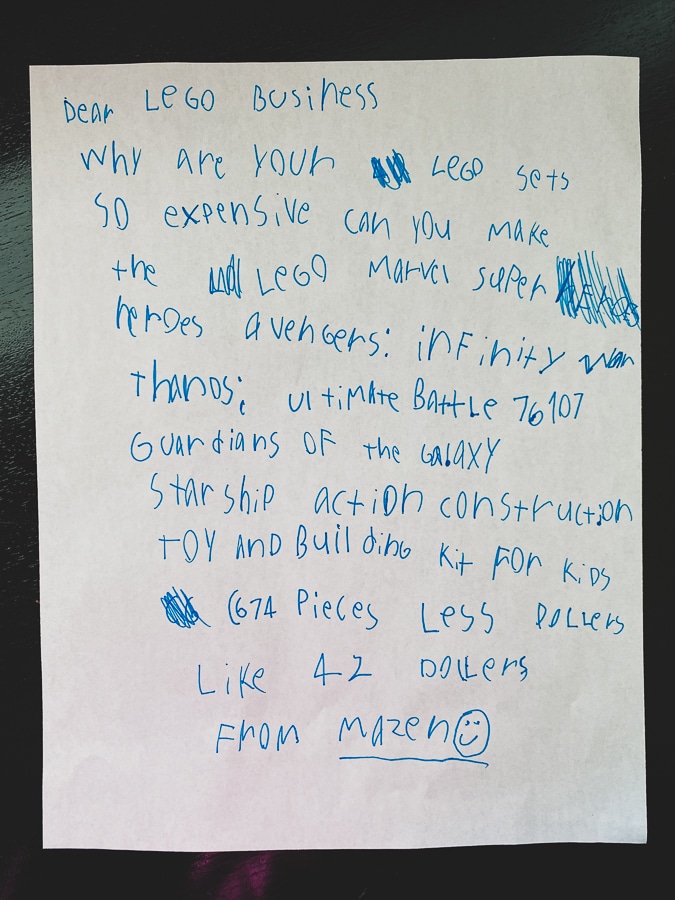 Dear LEGO Business
Why are your LEGO sets
so expensive can you make
the LEGO Marvel super
heroes avengers: infinity war
thanos: ultimate Battle 76107
Guardians of the Galaxy
Starship action construction
toy and Building kit for kids
(674 Pieces Less Dollers
Like 42 Dollers
From Mazen